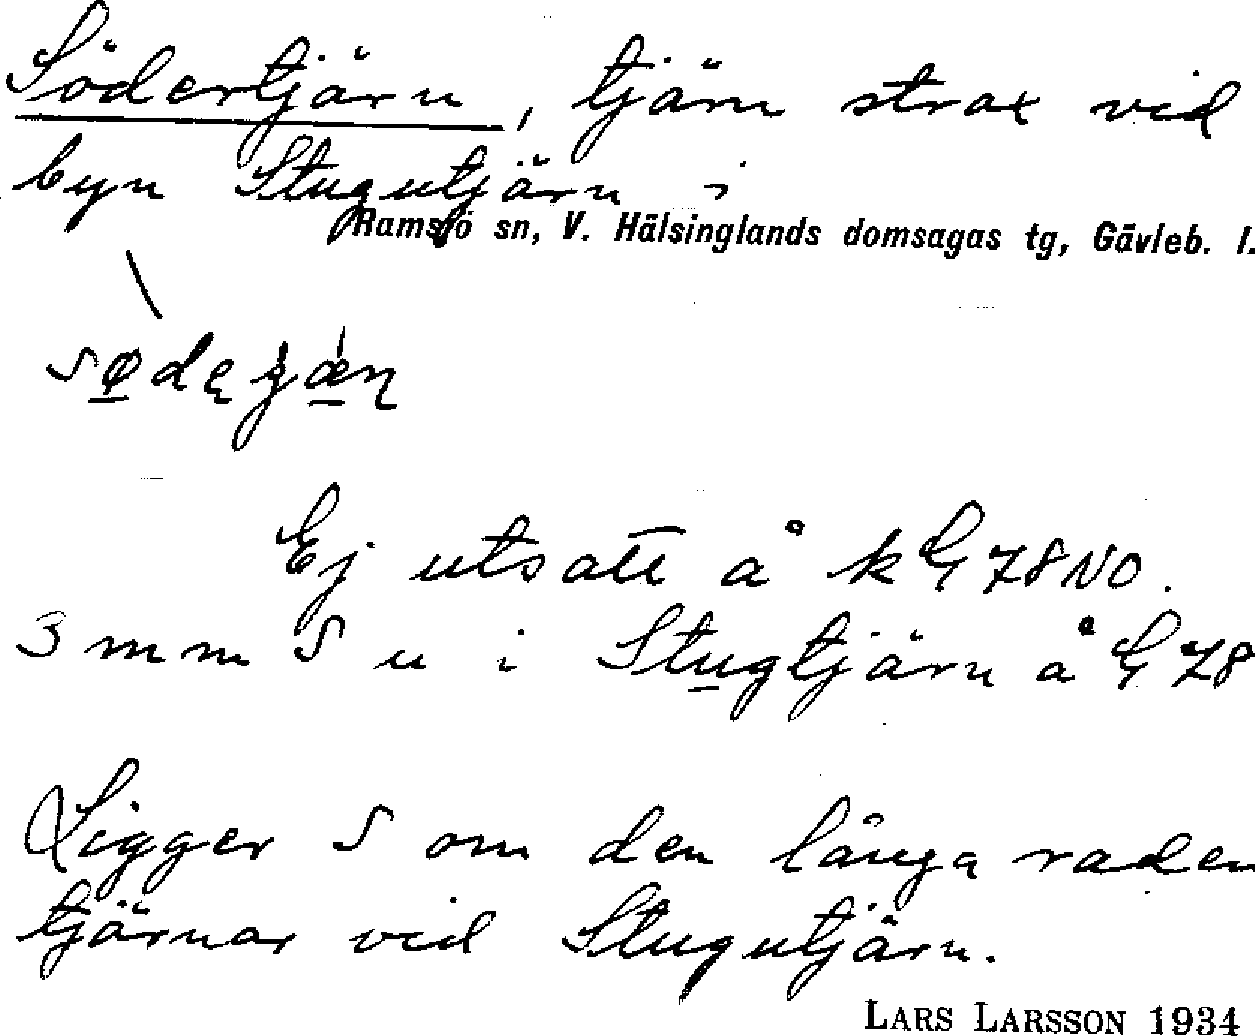 Södertjärn, tjärn strax vid
byn Stugutjärn i
Ramsjö sn, V. Hälsinglands domsagas tg, Gävleb. l.
Ej utsatt å k G 78 NO.
3 mm S u i Stugtjärn å G 78
Ligger S om den långa raden
tjärnar vid Stugutjärn.
LARS LARSSON 1934